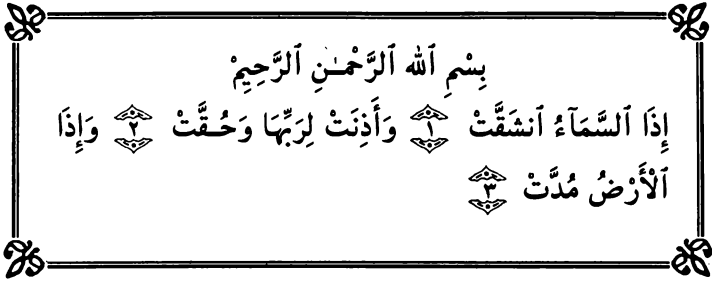 بِسْمِ ٱللَّه ٱلرَّحْمَـٰنِ ٱلرَّحِيمْ
إِذَا ٱلسَّمَآءُ ٱنشَقَّتْ ١ وَأَذِنَتْ لِرَبِّهَا وَحُـقَّتْ ٢ وَإِذَا
ٱلْأَرْضُ مُدَّتْ ٣